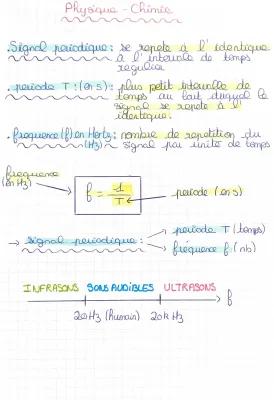 Physique - Chimie
. Signal periodique : se repete à l'identique
à l'intervale de temps
regulier
. periode T : (en s) : plus petit intervalle de
temps au bout duquel le
signal se repete à l'
identique.
. frequence (f) en Hertz : nombre de repetition du
(Hz) signal par unité de temps
frequence
(en Hz)
f = 1/T
periode (en s)
→ signal periodique :
periode T (temps)
fréquence f (nb)
INFRASONS SONS AUDIBLES ULTRASONS
f
20Hz (humain) 20k Hz